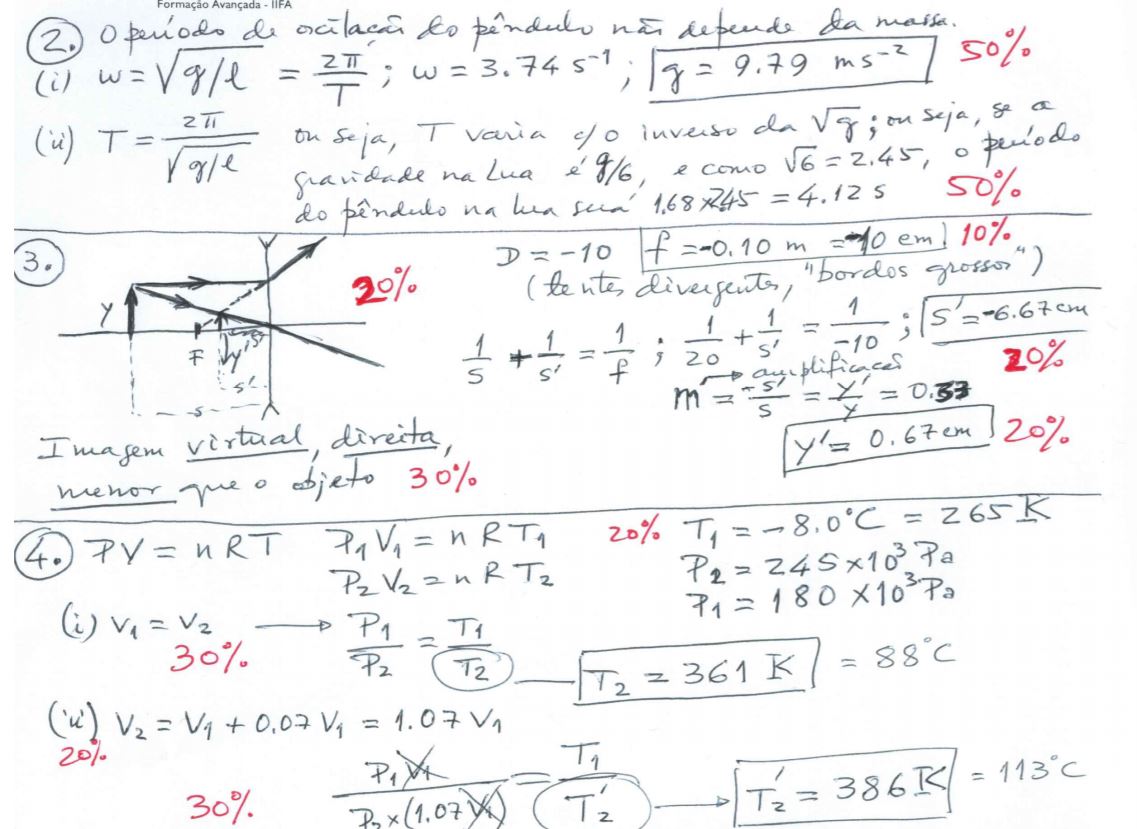 Formação Avançada - IIFA
2. O período de oscilação do pêndulo não depende da massa.
(i) w = √g/l = 2π/T ; w = 3.74 s⁻¹ ; g = 9.79 ms⁻² 50%
(ii) T = 2π/√g/l ou seja, T varia c/o inverso da √g; ou seja, se a
gravidade na Lua é g/6, e como √6 = 2.45, o período
do pêndulo na lua será 1.68×2.45 = 4.12 s 50%
3. D = -10 f = -0.10 m = -10 cm 10%
(lentes divergentes, "bordos grossos")
20%
Y F y' s' s
1/s + 1/s' = 1/f ; 1/20 + 1/s' = 1/-10 ; S' = -6.67 cm
20%
amplificação
m = -s'/s = y'/y = 0.33
y' = 0.67 cm 20%
Imagem virtual, direita,
menor que o objeto 30%
4. PV = nRT P₁V₁ = nRT₁ 20% T₁ = -8.0°C = 265 K
P₂V₂ = nRT₂ P₂ = 245×10³ Pa
P₁ = 180×10³ Pa
(i) V₁ = V₂ → P₁/P₂ = T₁/T₂ T₂ = 361 K = 88°C
30%
(ii) V₂ = V₁ + 0.07 V₁ = 1.07 V₁
20%
30% P₁V₁/P₂×(1.07 V₁) = T₁/T₂' → T₂' = 386 K = 113°C